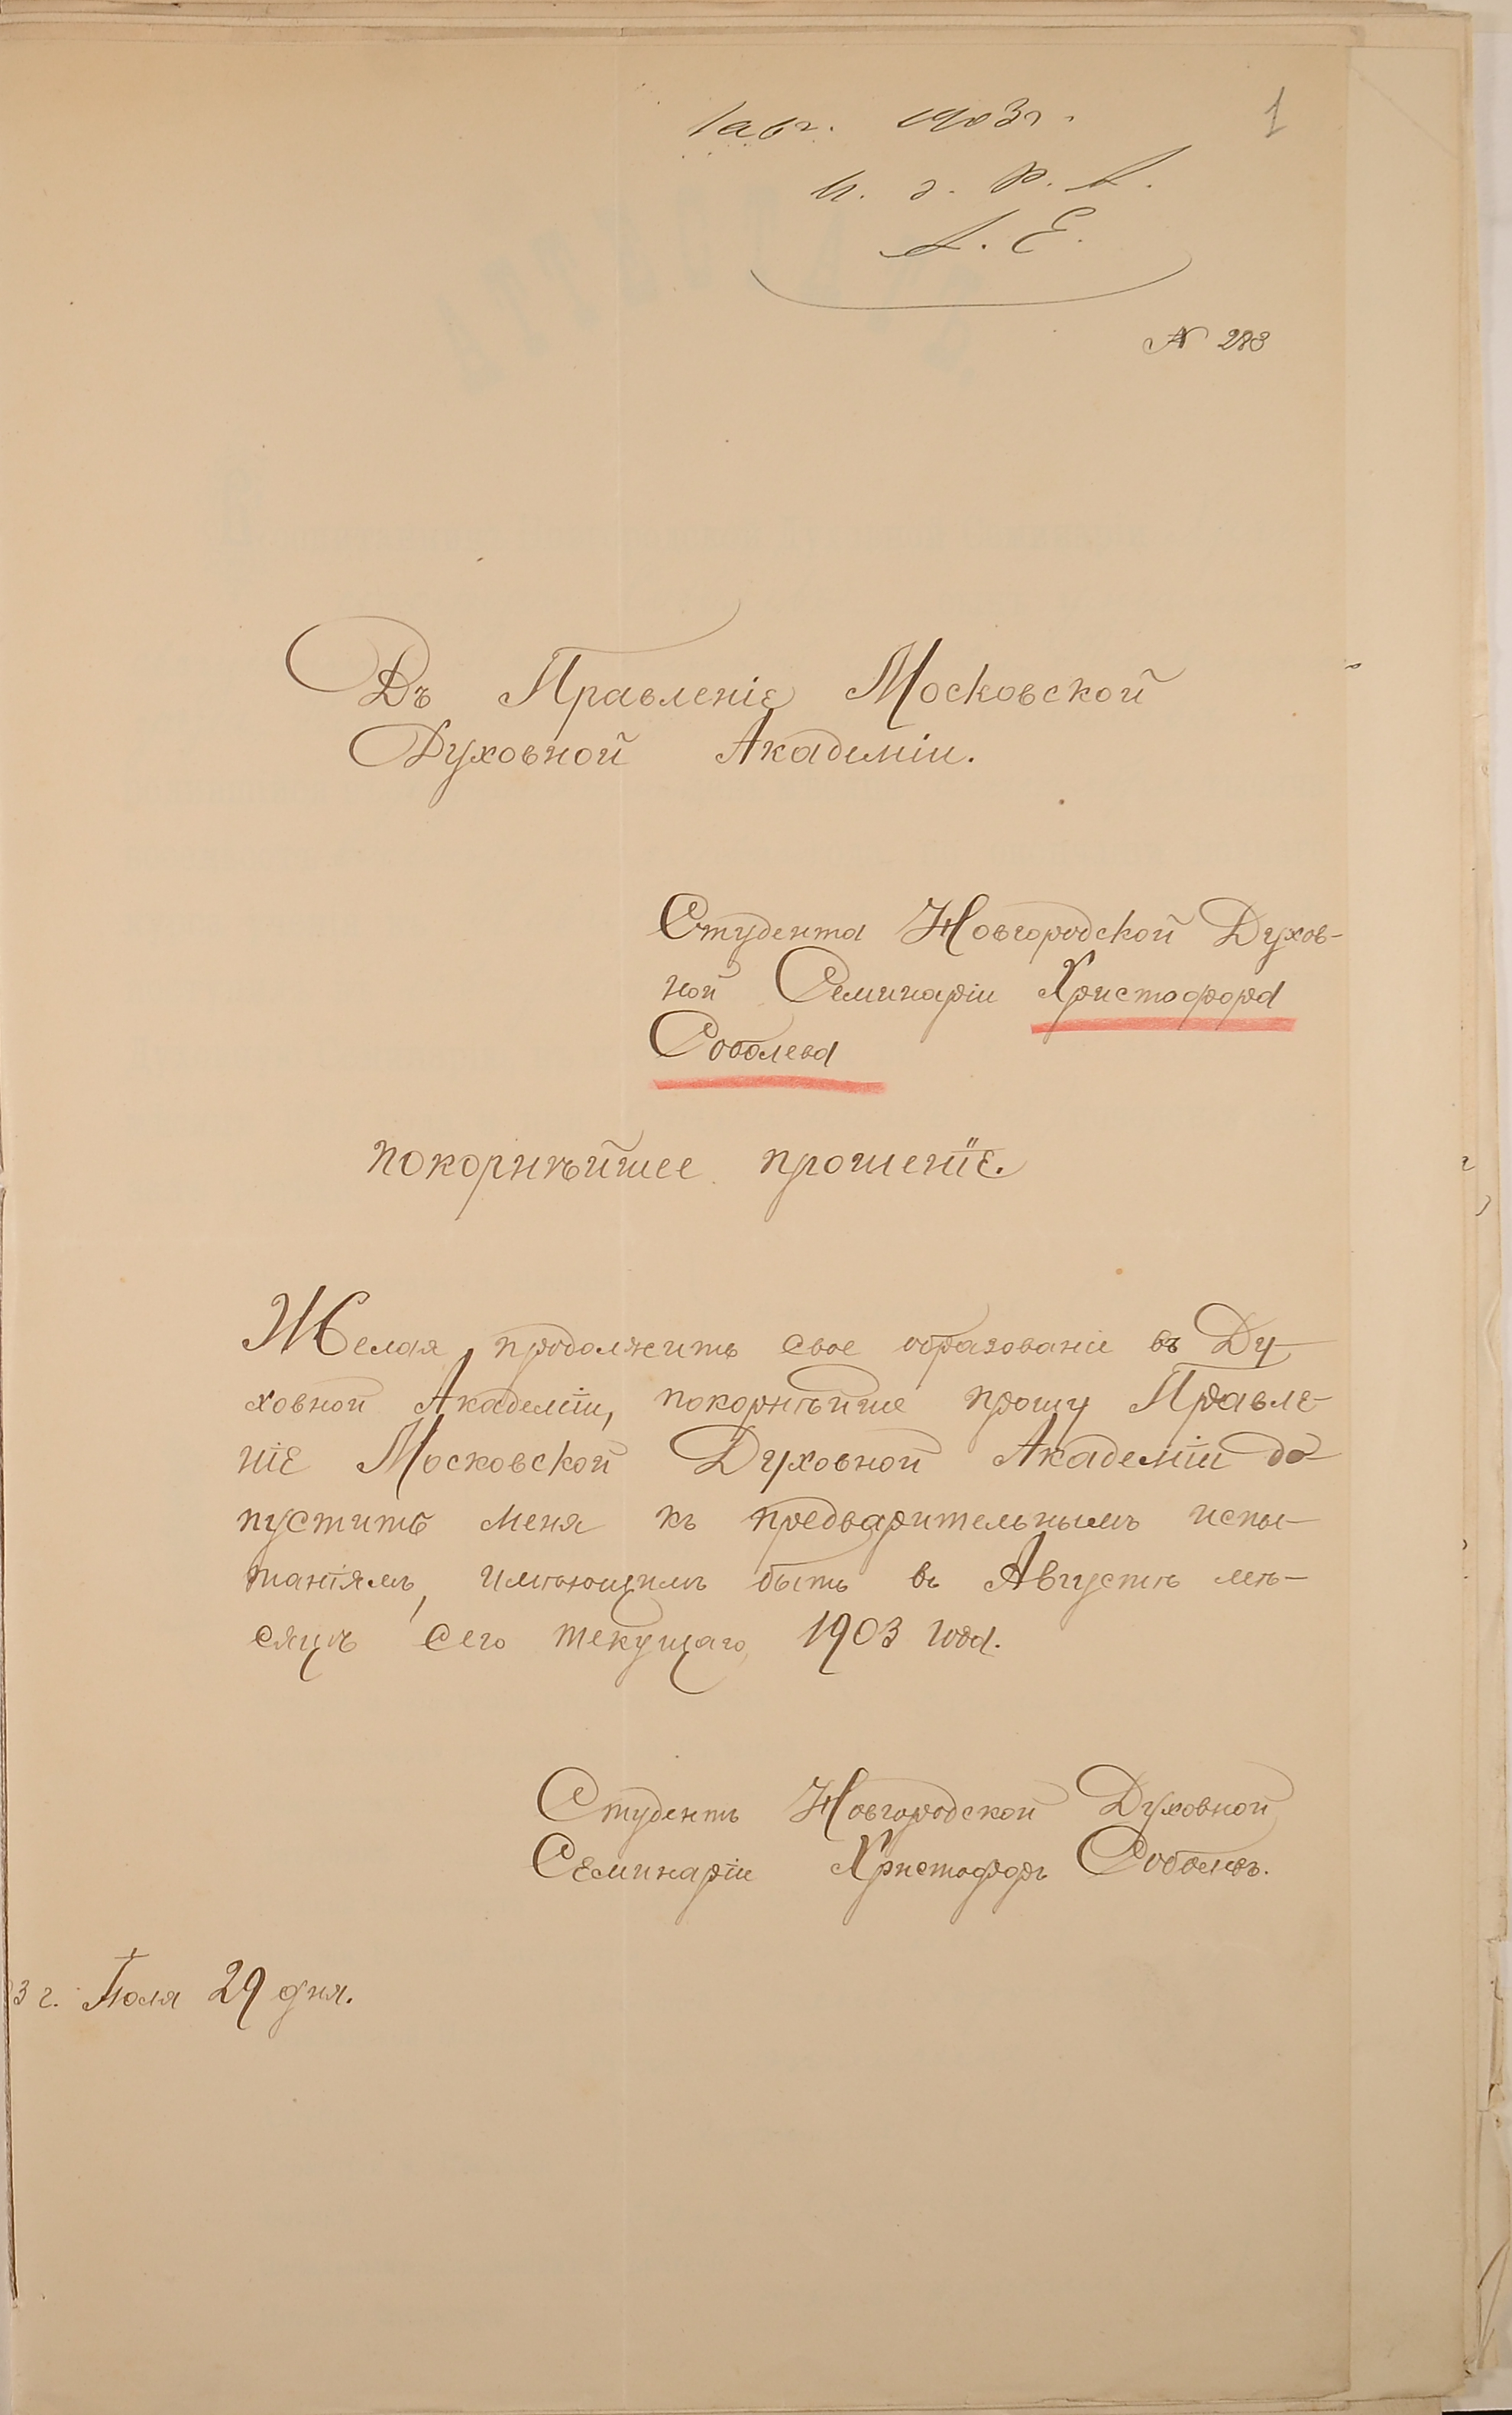 1 авг. 1903 г.
1
А. Е.
№ 283
Въ Правленіе Московской
Духовной Академіи.
Студента Новгородской Духов-
ной Семинаріи Христофора
Соболева
покорнѣйшее прошеніе.
Желая продолжить свое образованіе въ Ду-
ховной Академіи, покорнѣйше прошу Правле-
ніе Московской Духовной Академіи до-
пустить меня къ предварительнымъ испы-
таніямъ, имѣющимъ быть въ Августѣ мѣ-
сяцѣ сего текущаго 1903 года.
Студентъ Новгородской Духовной
Семинаріи Христофоръ Соболевъ.
3 г. Іюля 29 дня.